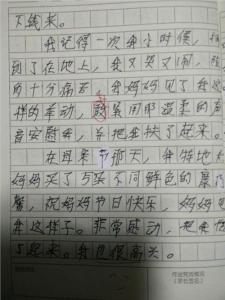 下钱来。
我记得一次年小时候，
到了在地上，我又哭又闹，
防十分痛苦，我妈妈见了我这
样的举动，就用那温柔的声
音安慰我，并把我扶了起来。
在母亲节那天，我特地
妈妈买了5朵不同鲜色的康乃
馨，祝妈妈节日快乐，妈妈
我这样子。非常感动，把我
了起来。我也很高兴。
作业完成情况
（家长签名）